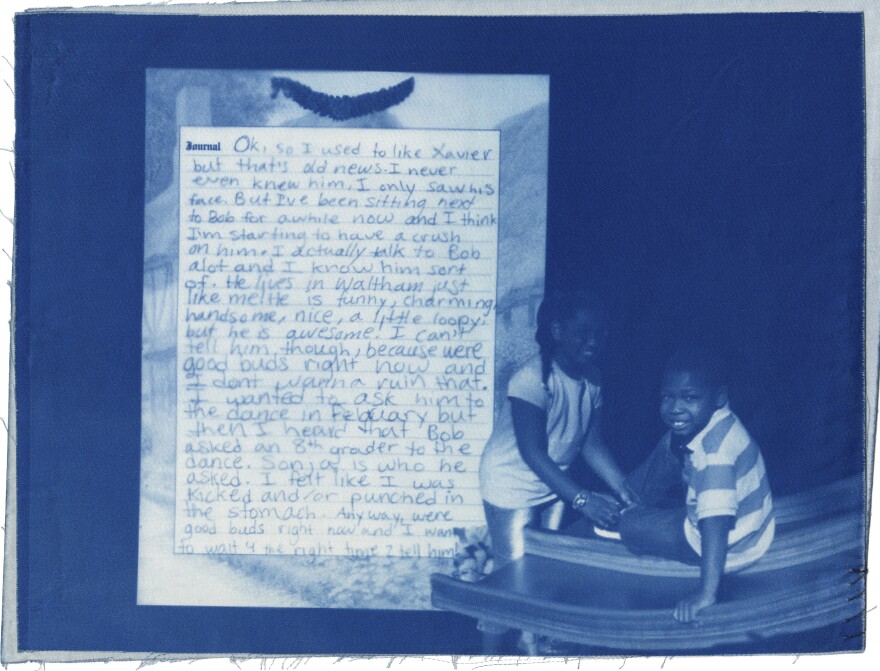 Journal Ok, so I used to like Xavier
but that's old news. I never
even knew him, I only saw his
face. But I've been sitting next
to Bob for awhile now and I think
I'm starting to have a crush
on him. I actually talk to Bob
alot and I know him sort
of. He lives in Waltham just
like me. He is funny, charming,
handsome, nice, a little loopy,
but he is awesome. I can't
tell him, though, because were
good buds right now and
I dont wanna ruin that.
I wanted to ask him to
the dance in Febuary but
then I heard that Bob
asked an 8th grader to the
dance. Sonja is who he
asked. I felt like I was
kicked and/or punched in
the stomach. Anyway, were
good buds right now and I want
to wait 4 the right time 2 tell him!